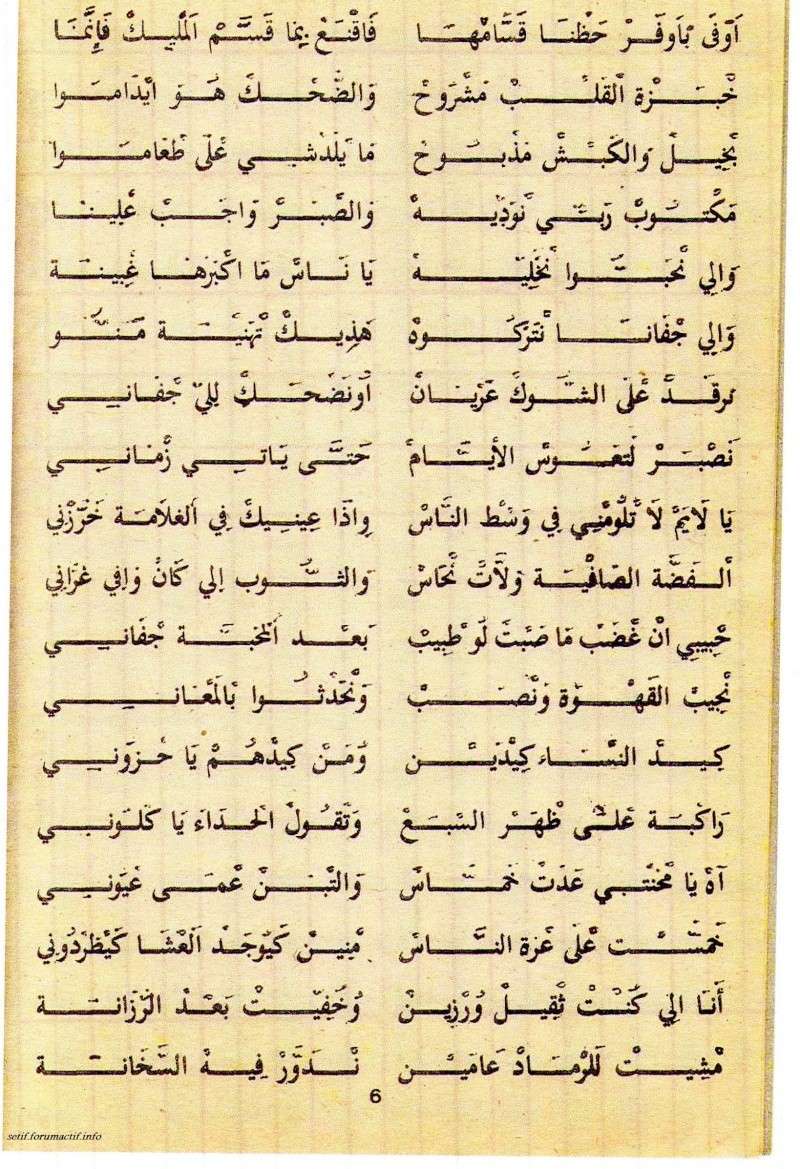 أَوْفَى بْأَوفَرْ حَظْنَا قَسَّامُهَا فَاقْنَعْ بِمَا قَسَّمْ اَلْمَلِيكْ فَإِنَّمَا
خُبْزَة اَلْقَلْبْ مَشْرُوحْ وَالضُّحْكْ هُوَ اَيْدَامُوا
بْخِيلْ وَالكَبْشْ مَذْبُوحْ مَا يَلَذْشِي عْلَى طْعَامُوا
مَكْتُوبْ رَبِّي نْوَدِّيهْ وَالصَّبْرْ وَاجَبْ عْلِينَا
وَالِي نْحَبُّوا نْخَلِّيهْ يَا نَاسْ مَا اكْبَرْهَا غْبِينَة
وَالِي جْفَانَا نْتَرْكُوهْ هَذِيكْ تْهَنِيَّة مَنُّو
نرقَدْ عْلَى الشُّوكْ عَرْيَانْ اُونَضْحَكْ لِلِيّ جْفَانِي
نَصْبَرْ لَتعَوْسْ الأيَّامْ حَتَّى يَاتِي زْمَانِي
يَا لَايَمْ لَا تْلُومْنِي فِي وَسْط النَّاسْ وِاذَا عِينِيكْ فِي اَلغلَامَة خَرّزْنِي
اَلفَضَّة الصَافْيَة وَلَاتْ نْحَاسْ وَالثُوب اِلي كَانْ وَافِي عَرَّانِي
حْبِيبِي انْ غْضَبْ مَا صَبْتَ لُو طْبِيبْ بَعْد اَلْمَحَبَّة جْفَانِي
نْجِيبْ القَهْوَة وَنْصَبْ وَنْحَدْثُوا بْالمْعَانِي
كِيد النْسَاء كِيدَيْن وَمَنْ كِيدْهُمْ يَا حْزُونِي
رَاكْبَة عْلَى ظْهَرْ السْبَعْ وَتْقُولْ الحْدَاءَ يَا كَلُونِي
آهْ يَا مَحْنْتِي عَدَتْ خَمَّاسْ وَالتْبَنْ عْمَى عْيُونِي
خَمَّسْت عْلَى عَزة النَّاسْ مْنِينْ كَيُوجَدْ اَلْعْشَا كَيْطَرْدُونِي
أَنَا الِي كُنْتْ ثْقِيلْ وُرْزِينْ وُخْفِيتْ بَعْدْ الرّْزَانَة
مْشِيتْ لَلرْمَادْ عَامَيْن نْدَوَّرْ فِيهْ السْخَانَة
6
setif.forumactif.info